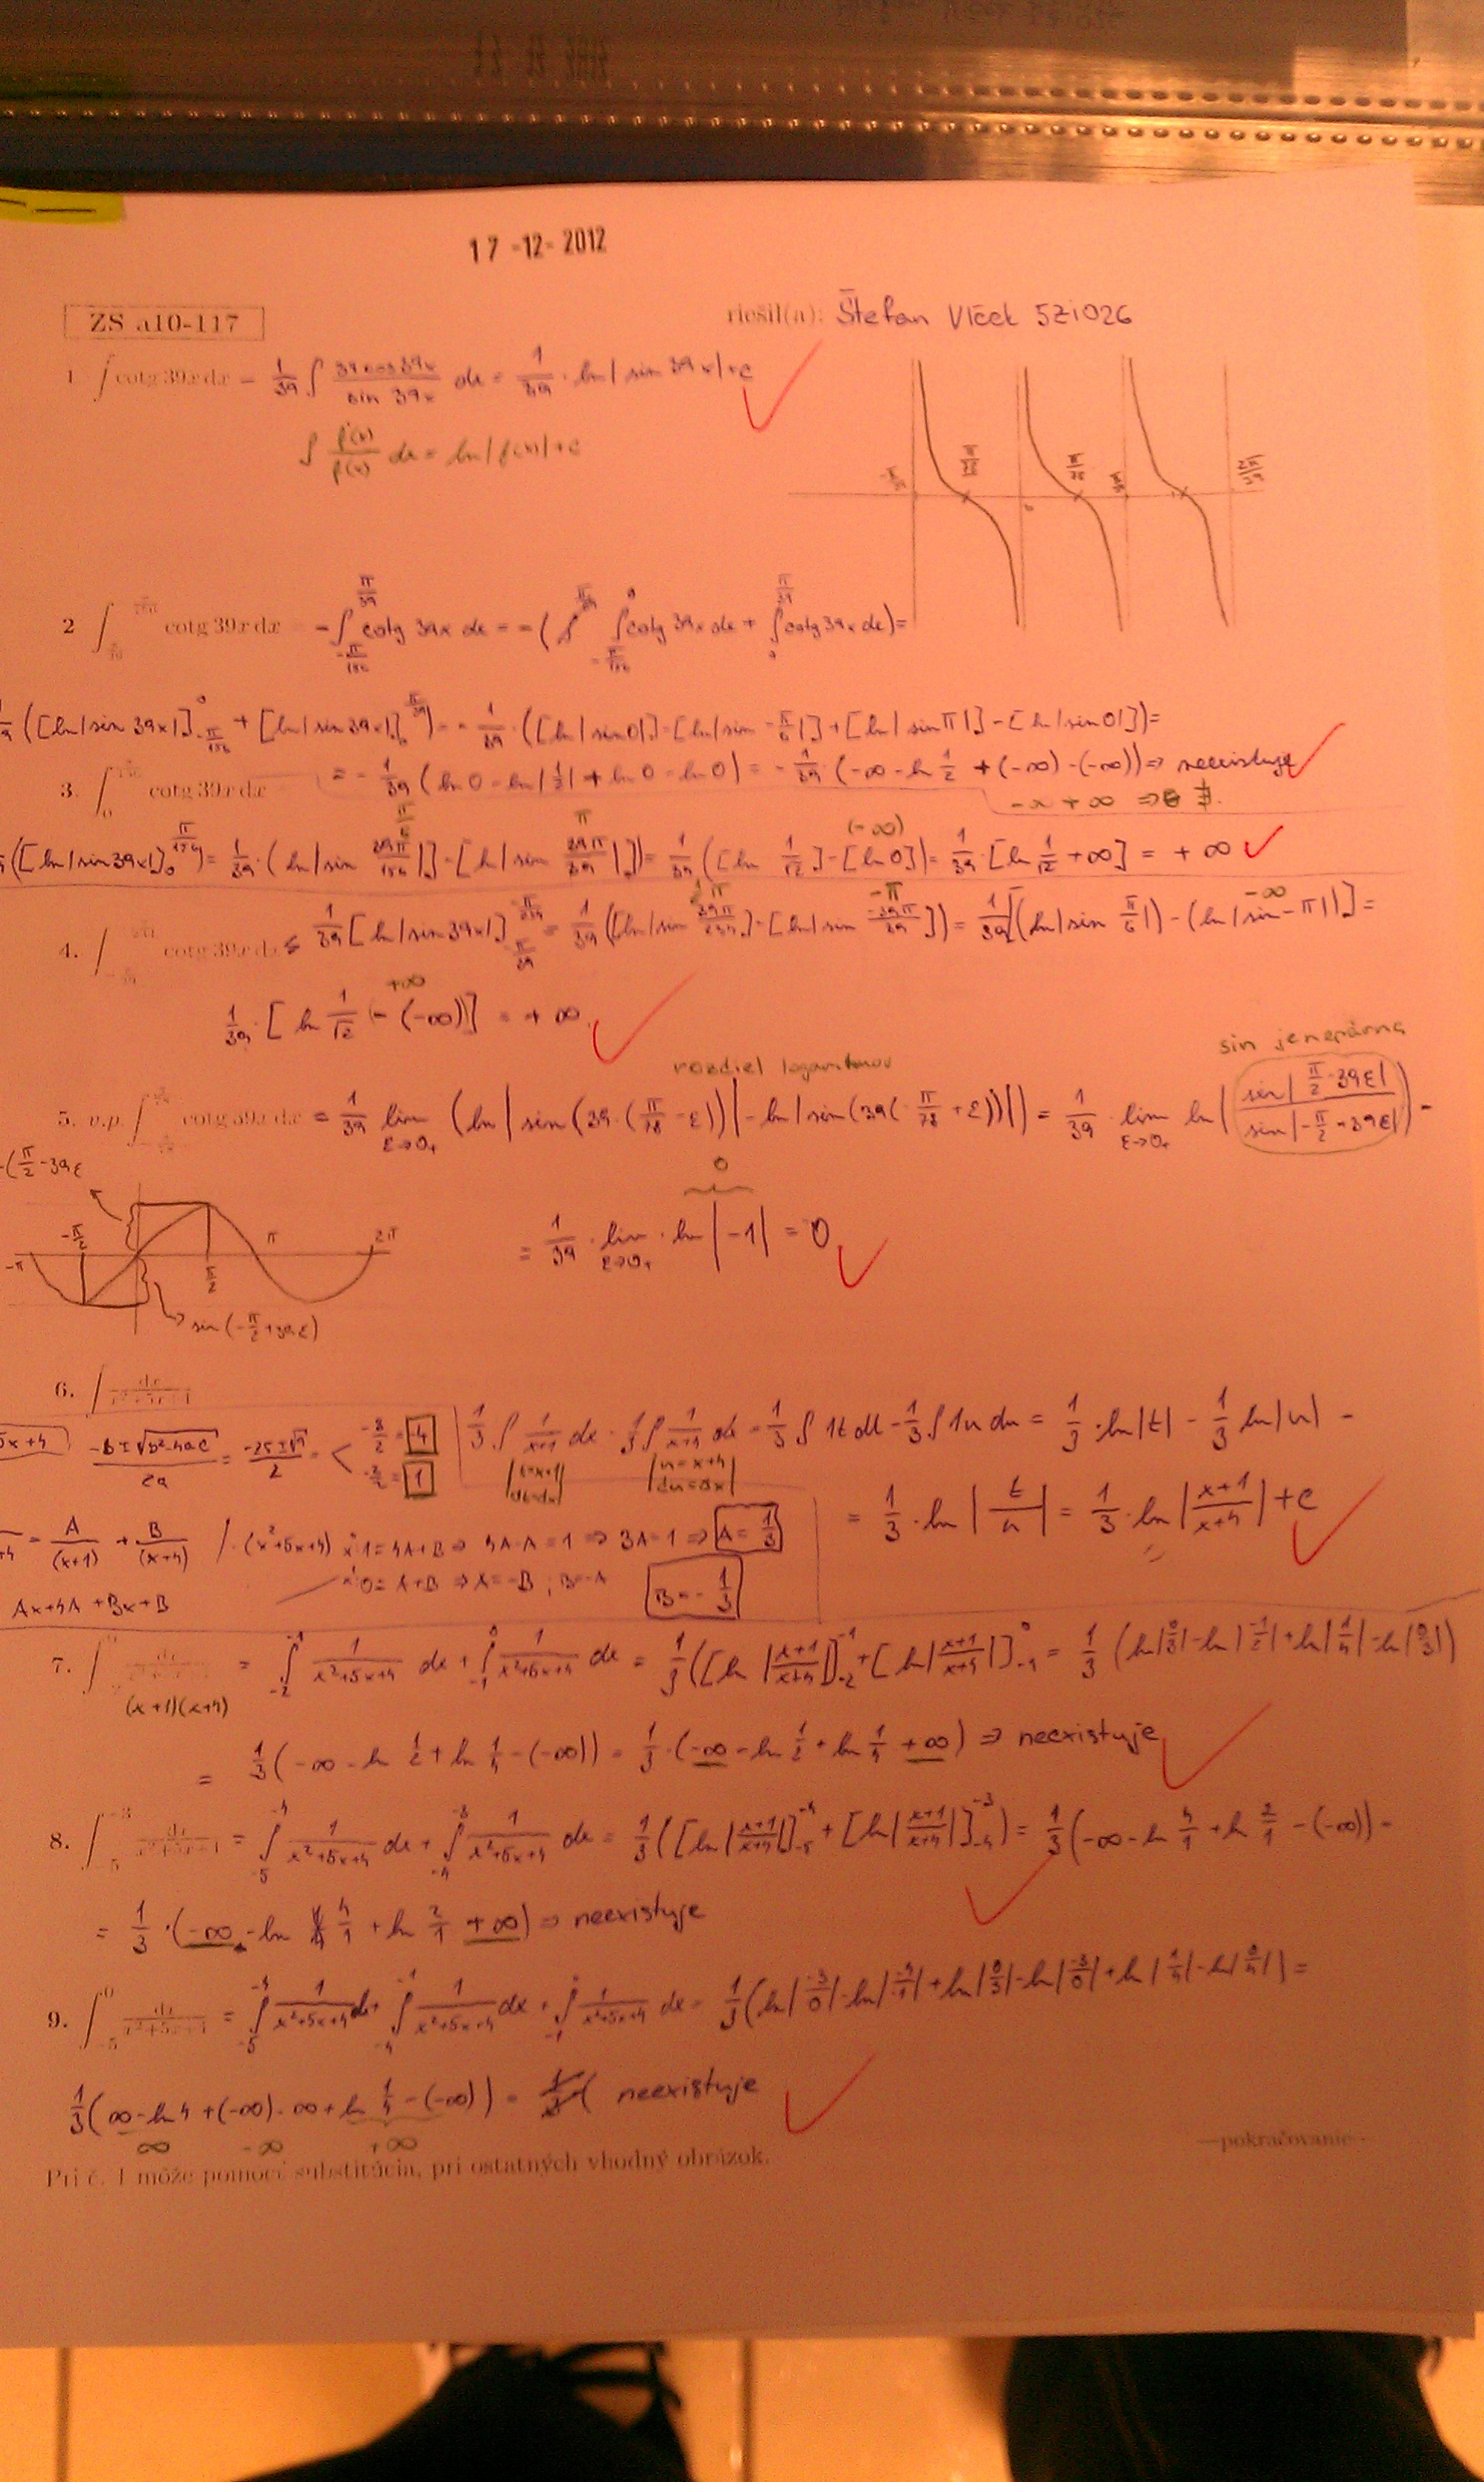 17 -12- 2012
ZS a10-117
riešil(a): Štefan Vlček 5ZI026
1 ∫ cotg 39x dx = 1/39 ∫ 39 cos 39x / sin 39x dx = 1/39 · ln | sin 39x | + c
∫ f'(x)/f(x) dx = ln | f(x) | + c
2 ∫ cotg 39x dx = - ∫ cotg 39x dx = - ( ∫ cotg 39x dx + ∫ cotg 39x dx ) =
([ln|sin 39x|] + [ln|sin 39x|]) = - 1/39 · ([ln|sin0|] - [ln|sin -π/6|] + [ln|sinπ|] - [ln|sin0|]) =
3. ∫ cotg 39x dx
= - 1/39 (ln 0 - ln|1/2| + ln 0 - ln 0) = - 1/39 · (-∞ - ln 1/2 + (-∞) - (-∞)) ⇒ neexistuje
-∞ + ∞ ⇒ ∄.
([ln|sin39x|]) = 1/39 · (ln|sin 39π/156|] - [ln|sin 39π/39|]) = 1/39 ([ln 1/√2] - [ln 0]) = 1/39 · [ln 1/√2 + ∞] = + ∞
4. ∫ cotg 39x dx = 1/39 [ln|sin39x|] = 1/39 ([ln|sin 39π/234] - [ln|sin -39π/39]) = 1/39 [(ln|sin π/6|) - (ln|sin -π|)] =
1/39 · [ln 1/√2 - (-∞)] = + ∞
rozdiel logaritmov
sin je nepárna
5. v.p. ∫ cotg 39x dx = 1/39 lim ε→0+ (ln | sin(39·(π/78 - ε)) | - ln | sin(39(-π/78 + ε)) |) = 1/39 · lim ε→0+ ln | sin|π/2 - 39ε| / sin|-π/2 + 39ε| | =
-(π/2 - 39ε
= 1/39 · lim ε→0+ · ln | -1 | = 0
-π -π/2 π/2 π 2π
sin(-π/2 + 39ε)
6. ∫ dx
5x+4 -b ± √b²-4ac / 2a = -5 ± √9 / 2 = < -8/2 = 4 -2/2 = 1
1/3 ∫ 1/x+1 dx - 1/3 ∫ 1/x+4 dx = 1/3 ∫ 1t dt - 1/3 ∫ 1u du = 1/3 · ln|t| - 1/3 ln|u| =
|t=x+1 dt=dx| |u=x+4 du=dx|
= 1/3 · ln | t/u | = 1/3 · ln | x+1 / x+4 | + c
= A/(x+1) + B/(x+4) / · (x²+5x+4) 1 = 4A+B ⇒ 4A-A = 1 ⇒ 3A = 1 ⇒ A = 1/3
0 = A+B ⇒ A = -B ; B = -A B = - 1/3
Ax+4A + Bx+B
7. ∫ = ∫ -2 -1 1/x²+5x+4 dx + ∫ -1 0 1/x²+5x+4 dx = 1/3 ([ln |x+1/x+4|] -2 -1 + [ln|x+1/x+4|] -1 0 = 1/3 (ln|0/3| - ln|-1/2| + ln|1/4| - ln|0/3|)
(x+1)(x+4)
= 1/3 (-∞ - ln 1/2 + ln 1/4 - (-∞)) = 1/3 · (-∞ - ln 1/2 + ln 1/4 + ∞) ⇒ neexistuje
8. ∫ -5 -3 dx = ∫ -5 -4 1/x²+5x+4 dx + ∫ -4 -3 1/x²+5x+4 dx = 1/3 ([ln|x+1/x+4|] -5 -4 + [ln|x+1/x+4|] -4 -3) = 1/3 (-∞ - ln 4/1 + ln 2/1 - (-∞)) =
= 1/3 · (-∞ - ln 4/1 + ln 2/1 + ∞) ⇒ neexistuje
9. ∫ -5 0 dx/x²+5x+4 = ∫ -5 -4 1/x²+5x+4 dx + ∫ -4 -1 1/x²+5x+4 dx + ∫ -1 1/x²+5x+4 dx = 1/3 (ln|-3/0| - ln|-4/1| + ln|0/3| - ln|-3/0| + ln|1/4| - ln|0/4|) =
1/3 (∞ - ln 4 + (-∞) - ∞ + ln 1/4 - (-∞)) = neexistuje
∞ -∞ +∞
Pri č. 1 môže pomôcť substitúcia, pri ostatných vhodný obrázok.
—pokračovanie—